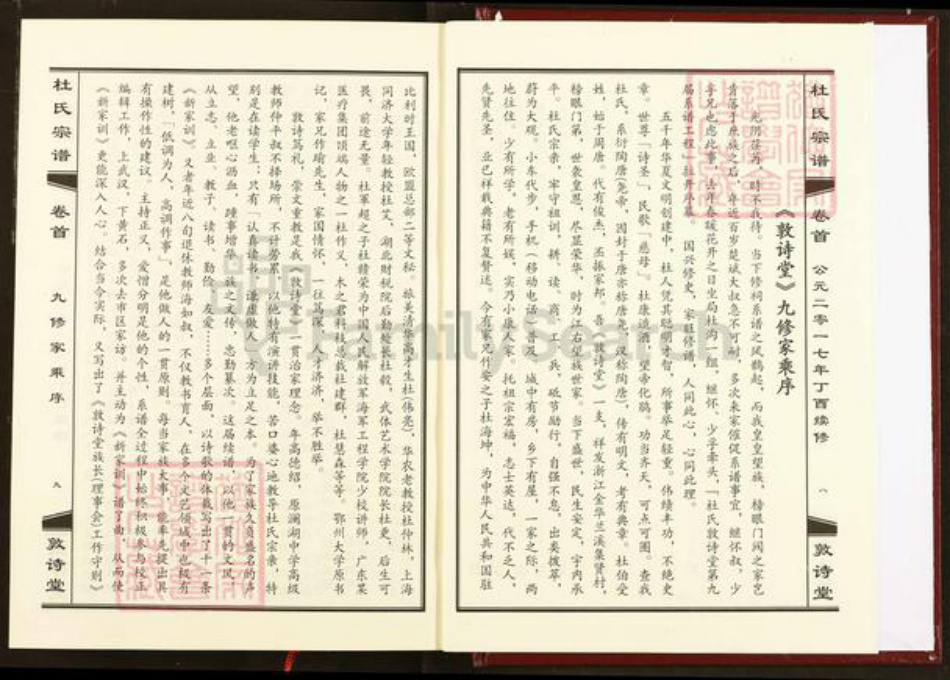 杜氏宗谱
卷首
公元二零一七年丁酉续修
八
敦诗堂
《敦诗堂》九修家乘序
光阴荏苒，时不我待。当下修祠系谱之风鹊起，而我皇皇望族，榜眼门闾之家岂
肯落于庶族之后。年近百岁楚斌大叔急不可耐，多次来家催促系谱事宜，继怀叔，少
亨兄也虑此事。去年春暖花开之日坐局杜沟一组，继怀、少孚牵头，「杜氏敦诗堂第九
届系谱工程」拉开序幕。国兴修史，家旺修谱，人同此心，心同此理。
五千年华夏文明创建中，杜人凭其聪明才智，所事举足轻重。伟绩丰功，不绝史
章。世尊「诗圣」，民歌「慈母」。杜康造酒，望帝化鹃。功当齐天，可点可圈。查我
杜氏，系衍陶唐(尧帝，因封于唐亦称唐尧，汉称陶唐)，传有明文，考有典章。杜伯受
姓，始于周唐。代有俊杰，丕振家邦。吾《敦诗堂》一支，祥发浙江金华兰溪集贤村，
榜眼门第，世袭皇恩，尽显荣华，时为江右望族世家。当下盛世，民生安定，宇内承
平。杜氏宗亲，牢守祖训，耕、读、商、工、兵，砥节励行，自强不息，出类拔萃，
蔚为大观。小车代步，手机(移动电话)普及，城中有房，乡下有屋，一家之际，两
地往住。少有所学，老有所娱，实乃小康人家。托祖宗宏福，志士英达，代不乏人，
先贤先圣，业已样载典籍不复赘述。今有家兄作安之子杜海坤，为中华人民共和国驻
杜氏宗谱
卷首
九修家乘序
九
敦诗堂
比利时王国，欧盟总部二等文秘。旅美清华高才生杜(伟亮)，华农老教授杜仲林，上海
同济大学年轻教授杜艾，湖北财税院后勤处长杜毅，武体艺术学院院长杜更，后生可
畏，前途无量。杜军超之子杜赣荣为中国人民解放军海军工程学院少校讲师，广东某
医疗集团顶端人物之一杜作义，木之君科技总裁杜建群，杜慧森等等。鄂州大学原书
记，家兄作瑜先生，家国情怀，一往笃深。人才济济，举不胜举。
敦诗笃礼，崇文重教是我《敦诗堂》一贯治家理念。年高德绍，原澜湖中学高级
教师仲平叔不择场所，不计劳累，以他特有演讲技能，苦口婆心地教导杜氏宗亲，特
别是在读学生：只有「认真读书，谦虚做人」方为立足之本。为了家族久负盛名的声
望，他老呕心沥血，踵事增华《族之文传》，忠勤纂次。这届续谱，以他一贯的文风，
从立志、立业、教子、读书、勤俭、友爱……多个层面，以诗歌的体裁写出了十八条
《新家训》。又者年近八旬退休教师海如叔，不仅教书育人，在多个文艺领域中也极有
建树，「低调为人，高调作事」，是他做人的一贯原则。每当家族大事，能率先提出具
有操作性的建议，主持正义，爱憎分明是他的个性，系谱全过程中始终积极参与校正
编辑工作，上武汉，下黄石，多次去市区家访，并主动为《新家训》谱了曲，从而使
《新家训》更能深入人心。结合当今实际，又写出了《敦诗堂族长(理事会)工作守则》
FamilySearch